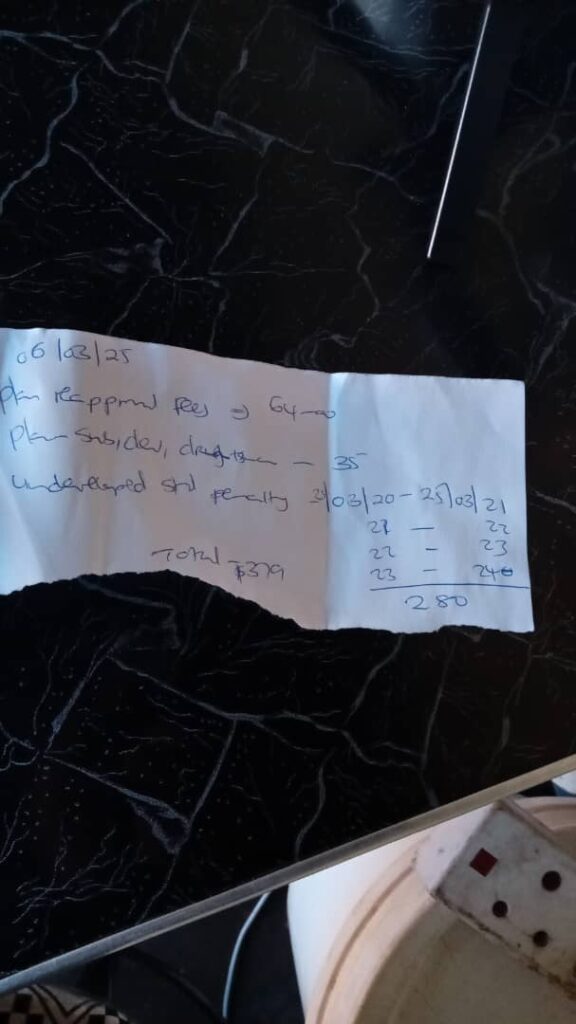 06/03/25
plan reapproval fees => 64-00
plan subs, dev, draughtsman - 35
undeveloped std penalty 25/03/20 - 25/03/21
21 - 22
22 - 23
23 - 24
280
Total - $379